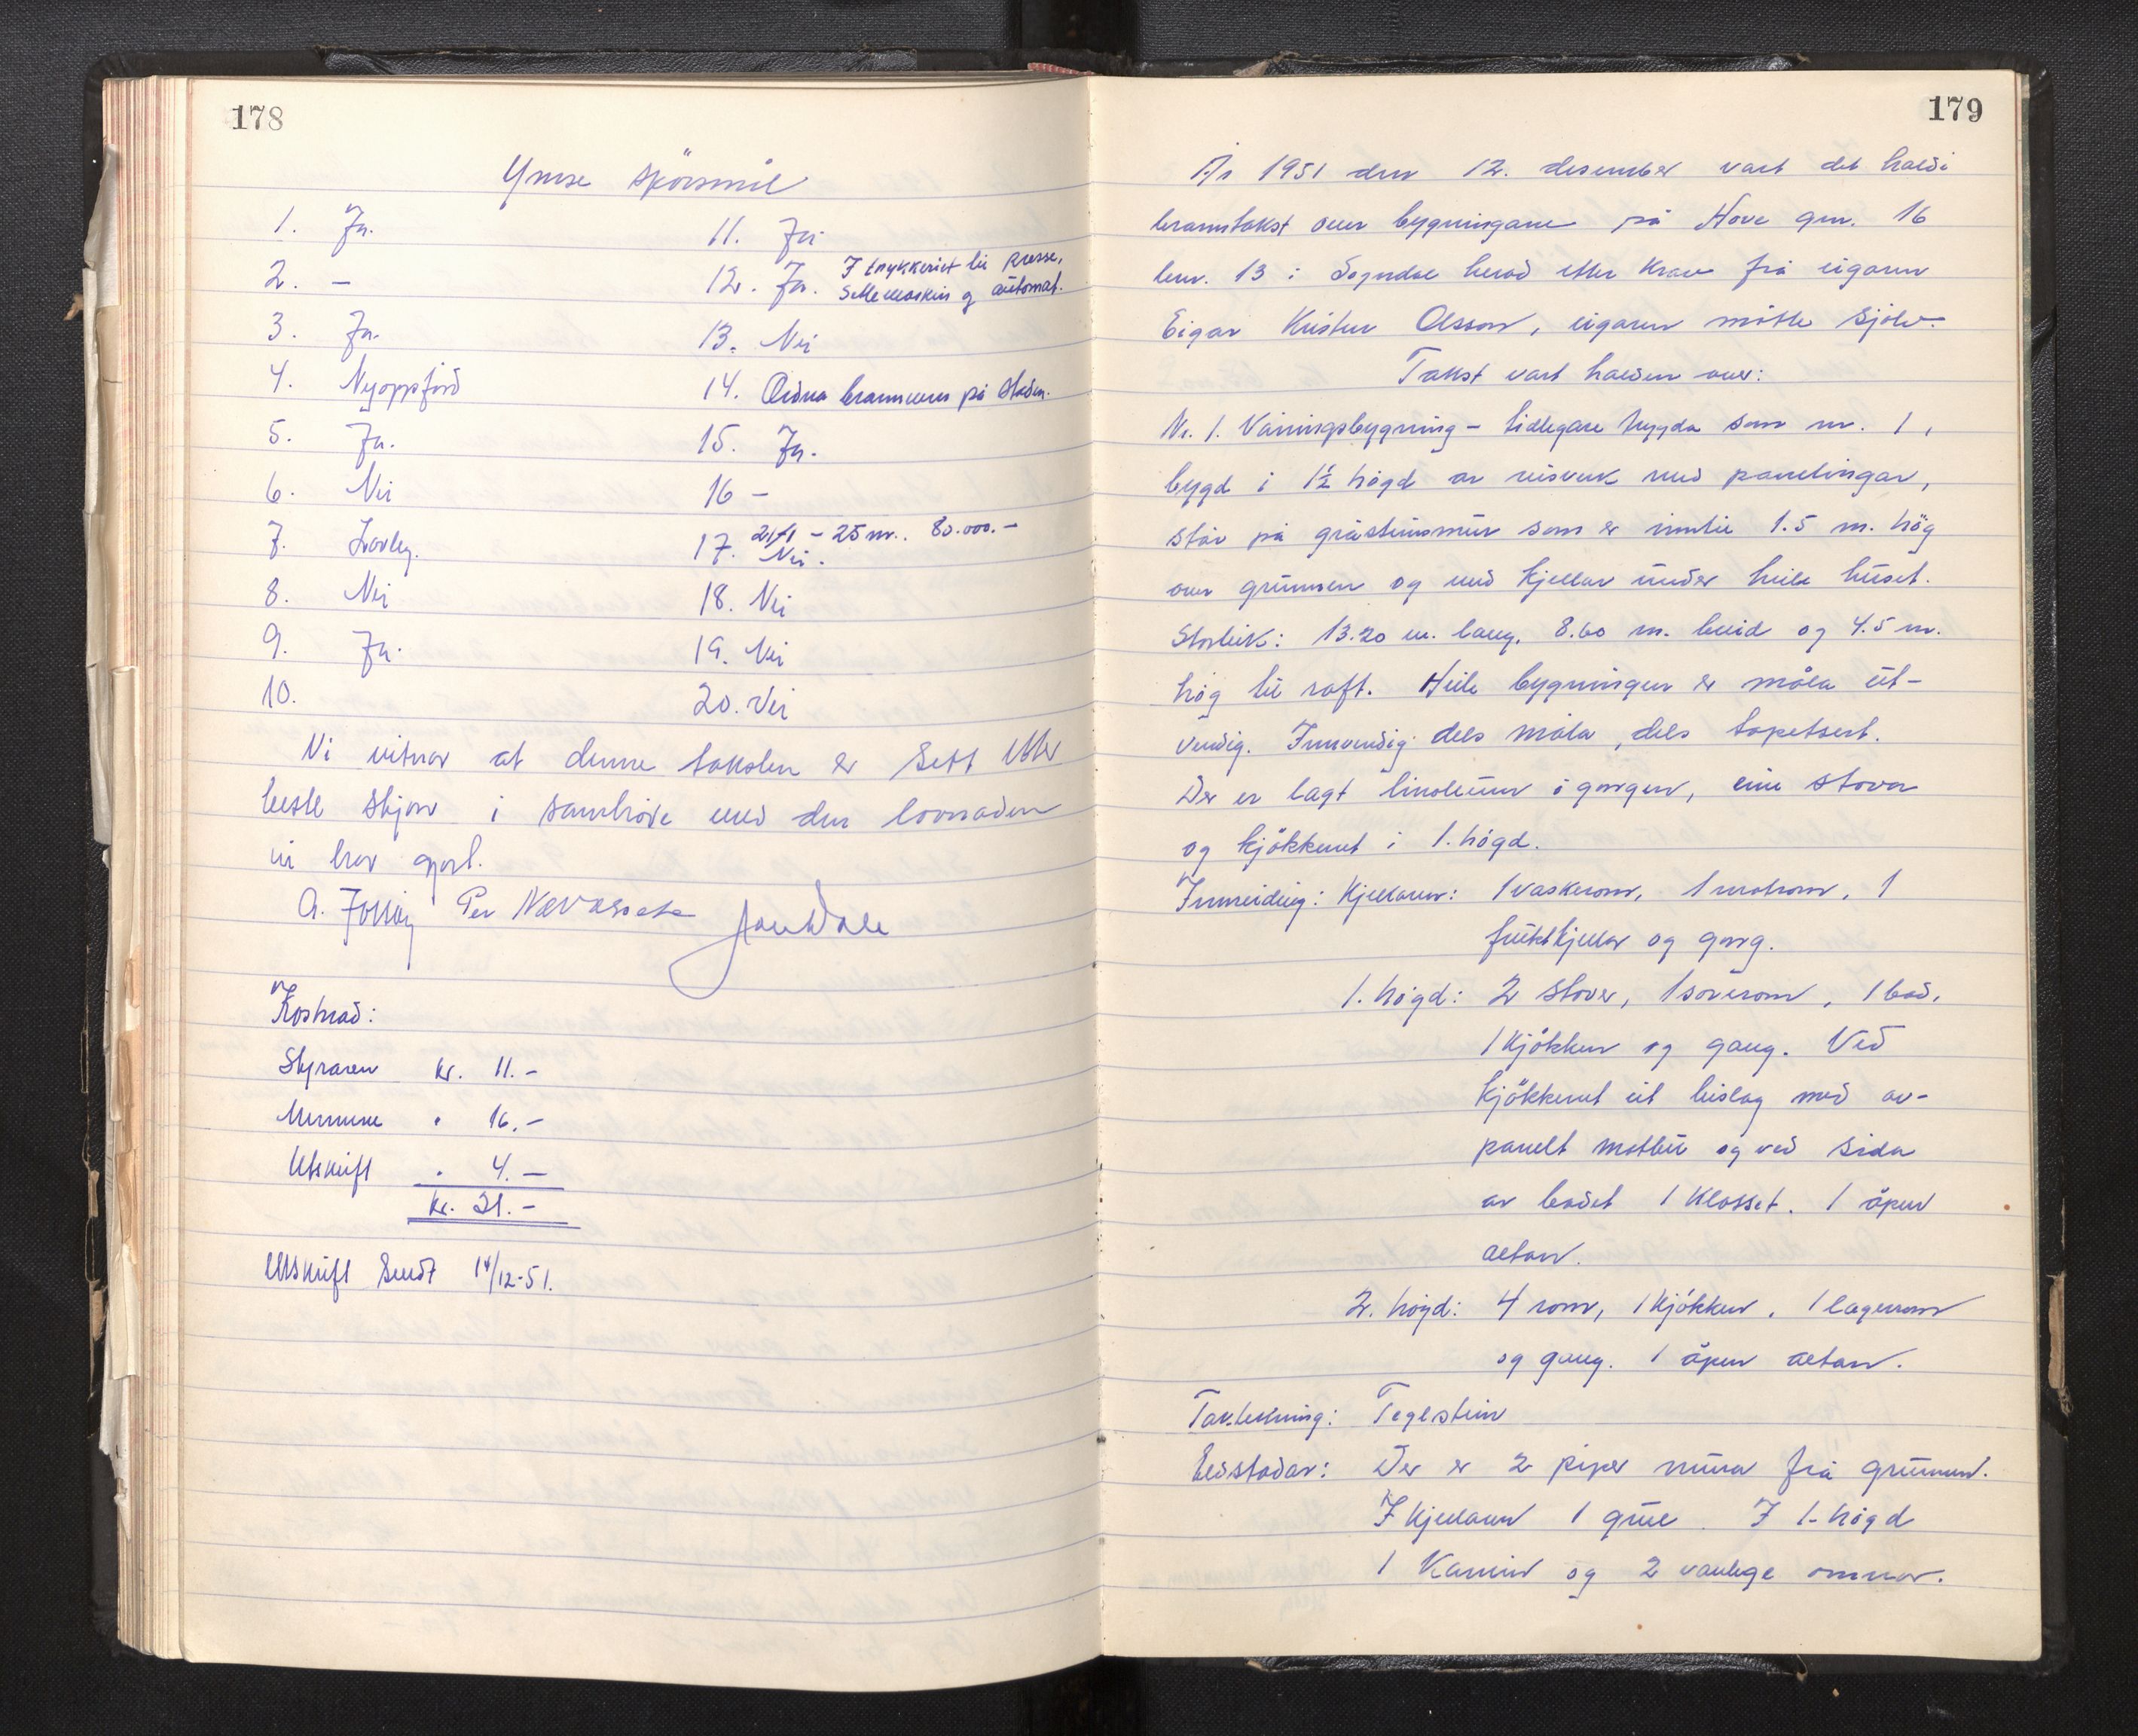 178
Ymse spörsmål
1. Ja.
2. –
3. Ja.
4. Nyoppförd
5. Ja.
6. Nei
7. Lovleg.
8. Nei
9. Ja.
10.
11. Ja
12. Ja. I trykkeriet lii presse,
Settemaskin og automat.
13. Nei
14. Ordna brannvern på staden.
15. Ja.
16 –
17. – 25 m. 80.000.–
Nei.
18. Nei
19. Nei
20. Nei
Vi vitnar at denne taksten er sett etter
beste skjön i samhöve med den lovnaden
vi hev gjort.
A. Per Navarsete
Kostnad:
Styraren kr. 11.–
Mennene " 16.–
Utskrift " 4.–
kr. 31.–
Utskrift Sendt 14/12-51.
179
År 1951 den 12. desember vart det haldi
branntakst over bygningane på Hove gnr. 16
bnr. 13 i Sogndal herad etter krav frå eigaren
Eigar Kristen Olsson, eigaren mötte sjölv.
Takst vart halden over:
Nr. 1. Våningsbygning – tidlegare trygda som nr. 1,
bygd i 1½ högd av reisverk med panelingar,
står på gråsteinsmur som er inntil 1.5 m. hög
over grunnen og med kjellar under heile huset.
Storleik: 13.20 m. lang, 8.60 m. breid og 4.5 m.
hög til raft. Heile bygningen er måla ut-
vendig. Innvendig dels måla, dels tapetsert.
Der er lagt linoleum i gangen, eine stova
og kjökkenet i 1. högd.
Innreiding: Kjellaren: 1 vaskerom, 1 matrom, 1
fruktkjellar og gang.
1. högd: 2 stover, 1 soverom, 1 bad,
1 kjökken og gang. Ved
kjökkenet eit bislag med av-
panelt matbu og ved sida
av badet 1 klosset. 1 åpen
altan.
2. högd: 4 rom, 1 kjökken, 1 lagerrom
og gang. 1 åpen altan.
Taktekning: Teglstein
Eldstadar: Der er 2 piper mura frå grunnen.
I kjellaren 1 grue. I 1. högd
1 Kamin og 2 vanlege omnar.